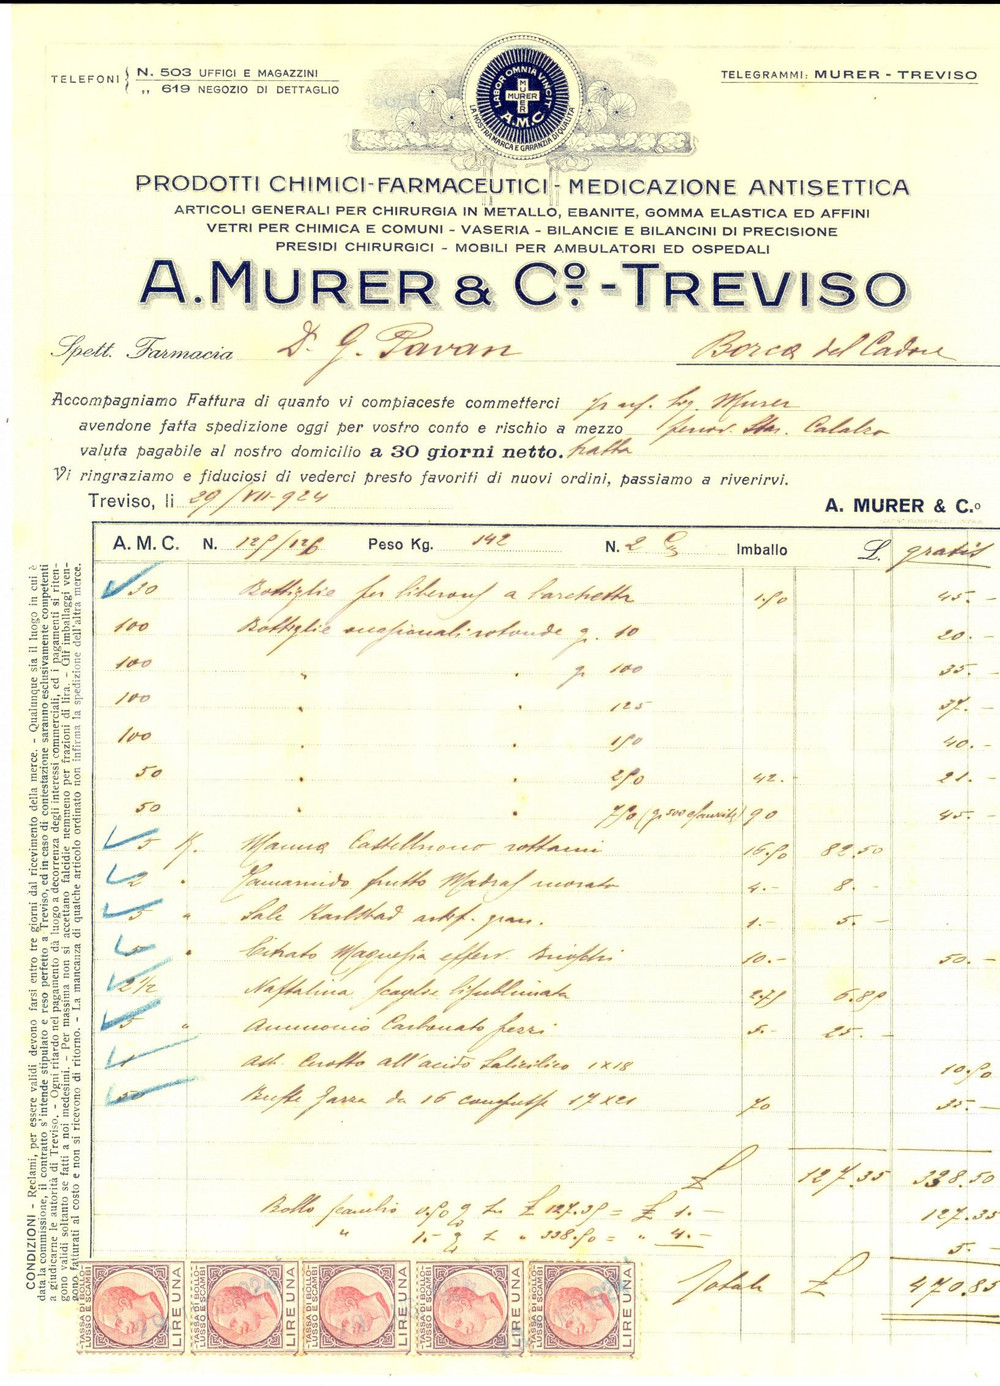 TELEFONI { N. 503 UFFICI E MAGAZZINI
„ 619 NEGOZIO DI DETTAGLIO
TELEGRAMMI: MURER - TREVISO
LABOR OMNIA VINCIT
MURER
MURER
A.M.C.
LA NOSTRA MARCA E GARANZIA DI QUALITA
PRODOTTI CHIMICI-FARMACEUTICI - MEDICAZIONE ANTISETTICA
ARTICOLI GENERALI PER CHIRURGIA IN METALLO, EBANITE, GOMMA ELASTICA ED AFFINI
VETRI PER CHIMICA E COMUNI - VASERIA - BILANCIE E BILANCINI DI PRECISIONE
PRESIDI CHIRURGICI - MOBILI PER AMBULATORI ED OSPEDALI
A. MURER & Co. - TREVISO
Spett. Farmacia D. G. Pavan Borca del Cadore
Accompagniamo Fattura di quanto vi compiaceste commetterci Murer
avendone fatta spedizione oggi per vostro conto e rischio a mezzo ferrov. Staz. Calalzo
valuta pagabile al nostro domicilio a 30 giorni netto. tratta
Vi ringraziamo e fiduciosi di vederci presto favoriti di nuovi ordini, passiamo a riverirvi.
Treviso, li 29/VII-924
A. MURER & C.o
A. M. C. N. 125/126 Peso Kg. 142 N. 2 Imballo L. gratis
30 Bottiglie a barchetta 1.50 45.-
100 Bottiglie rotonde g. 10 20.-
100 " " g. 100 35.-
100 " " 125 37.-
100 " " 150 40.-
50 " " 250 42.- 21.-
50 " " 750 90 45.-
5 K. Manna Castelbuono rottami 16.50 82.50
2 " Tamarindo frutto Madras 4.- 8.-
5 " Sale Karlsbad artif. gran. 1.- 5.-
5 " Citrato Magnesia efferv. Brioschi 10.- 50.-
2 1/2 Naftalina scaglie bisublimata 2.75 6.85
5 " Ammonio Carbonato pezzi 5.- 25.-
1 ast. Cerotto all'acido Salicilico 1x18 10.50
50 Buste Garza da 16 compresse 17x21 70 35.-
£ 127.35 338.50
Bollo 0.50 % £ 127.35 = £ 1.- 127.35
" 1.- % " 338.50 = " 4.- 5.-
Totale £ 470.85
CONDIZIONI - Reclami, per essere validi devono farsi entro tre giorni dal ricevimento della merce. - Qualunque sia il luogo in cui è
data la commissione, il contratto s'intende stipulato e reso perfetto a Treviso, ed in caso di contestazione saranno esclusivamente competenti
a giudicarne le autorità di Treviso. - Ogni ritardo nel pagamento dà luogo a decorrenza degli interessi commerciali, ed i pagamenti si riten-
gono validi soltanto se fatti a noi medesimi. - Per massima non si accettano falcidie nemmeno per frazioni di lira. - Gli imballaggi ven-
gono fatturati al costo e non si ricevono di ritorno. - La mancanza di qualche articolo ordinato non infirma la spedizione dell'altra merce.
TASSA DI BOLLO LUSSO E SCAMBI LIRE UNA
TASSA DI BOLLO LUSSO E SCAMBI LIRE UNA
TASSA DI BOLLO LUSSO E SCAMBI LIRE UNA
TASSA DI BOLLO LUSSO E SCAMBI LIRE UNA
TASSA DI BOLLO LUSSO E SCAMBI LIRE UNA